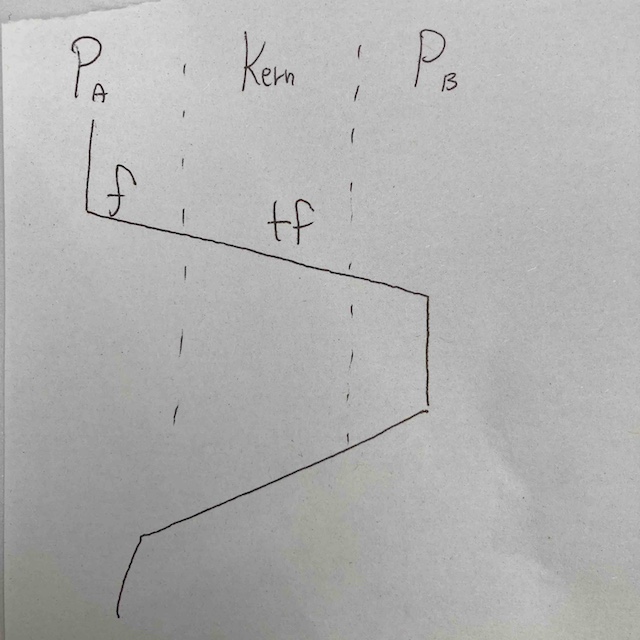 P_A Kern P_B
f
tf